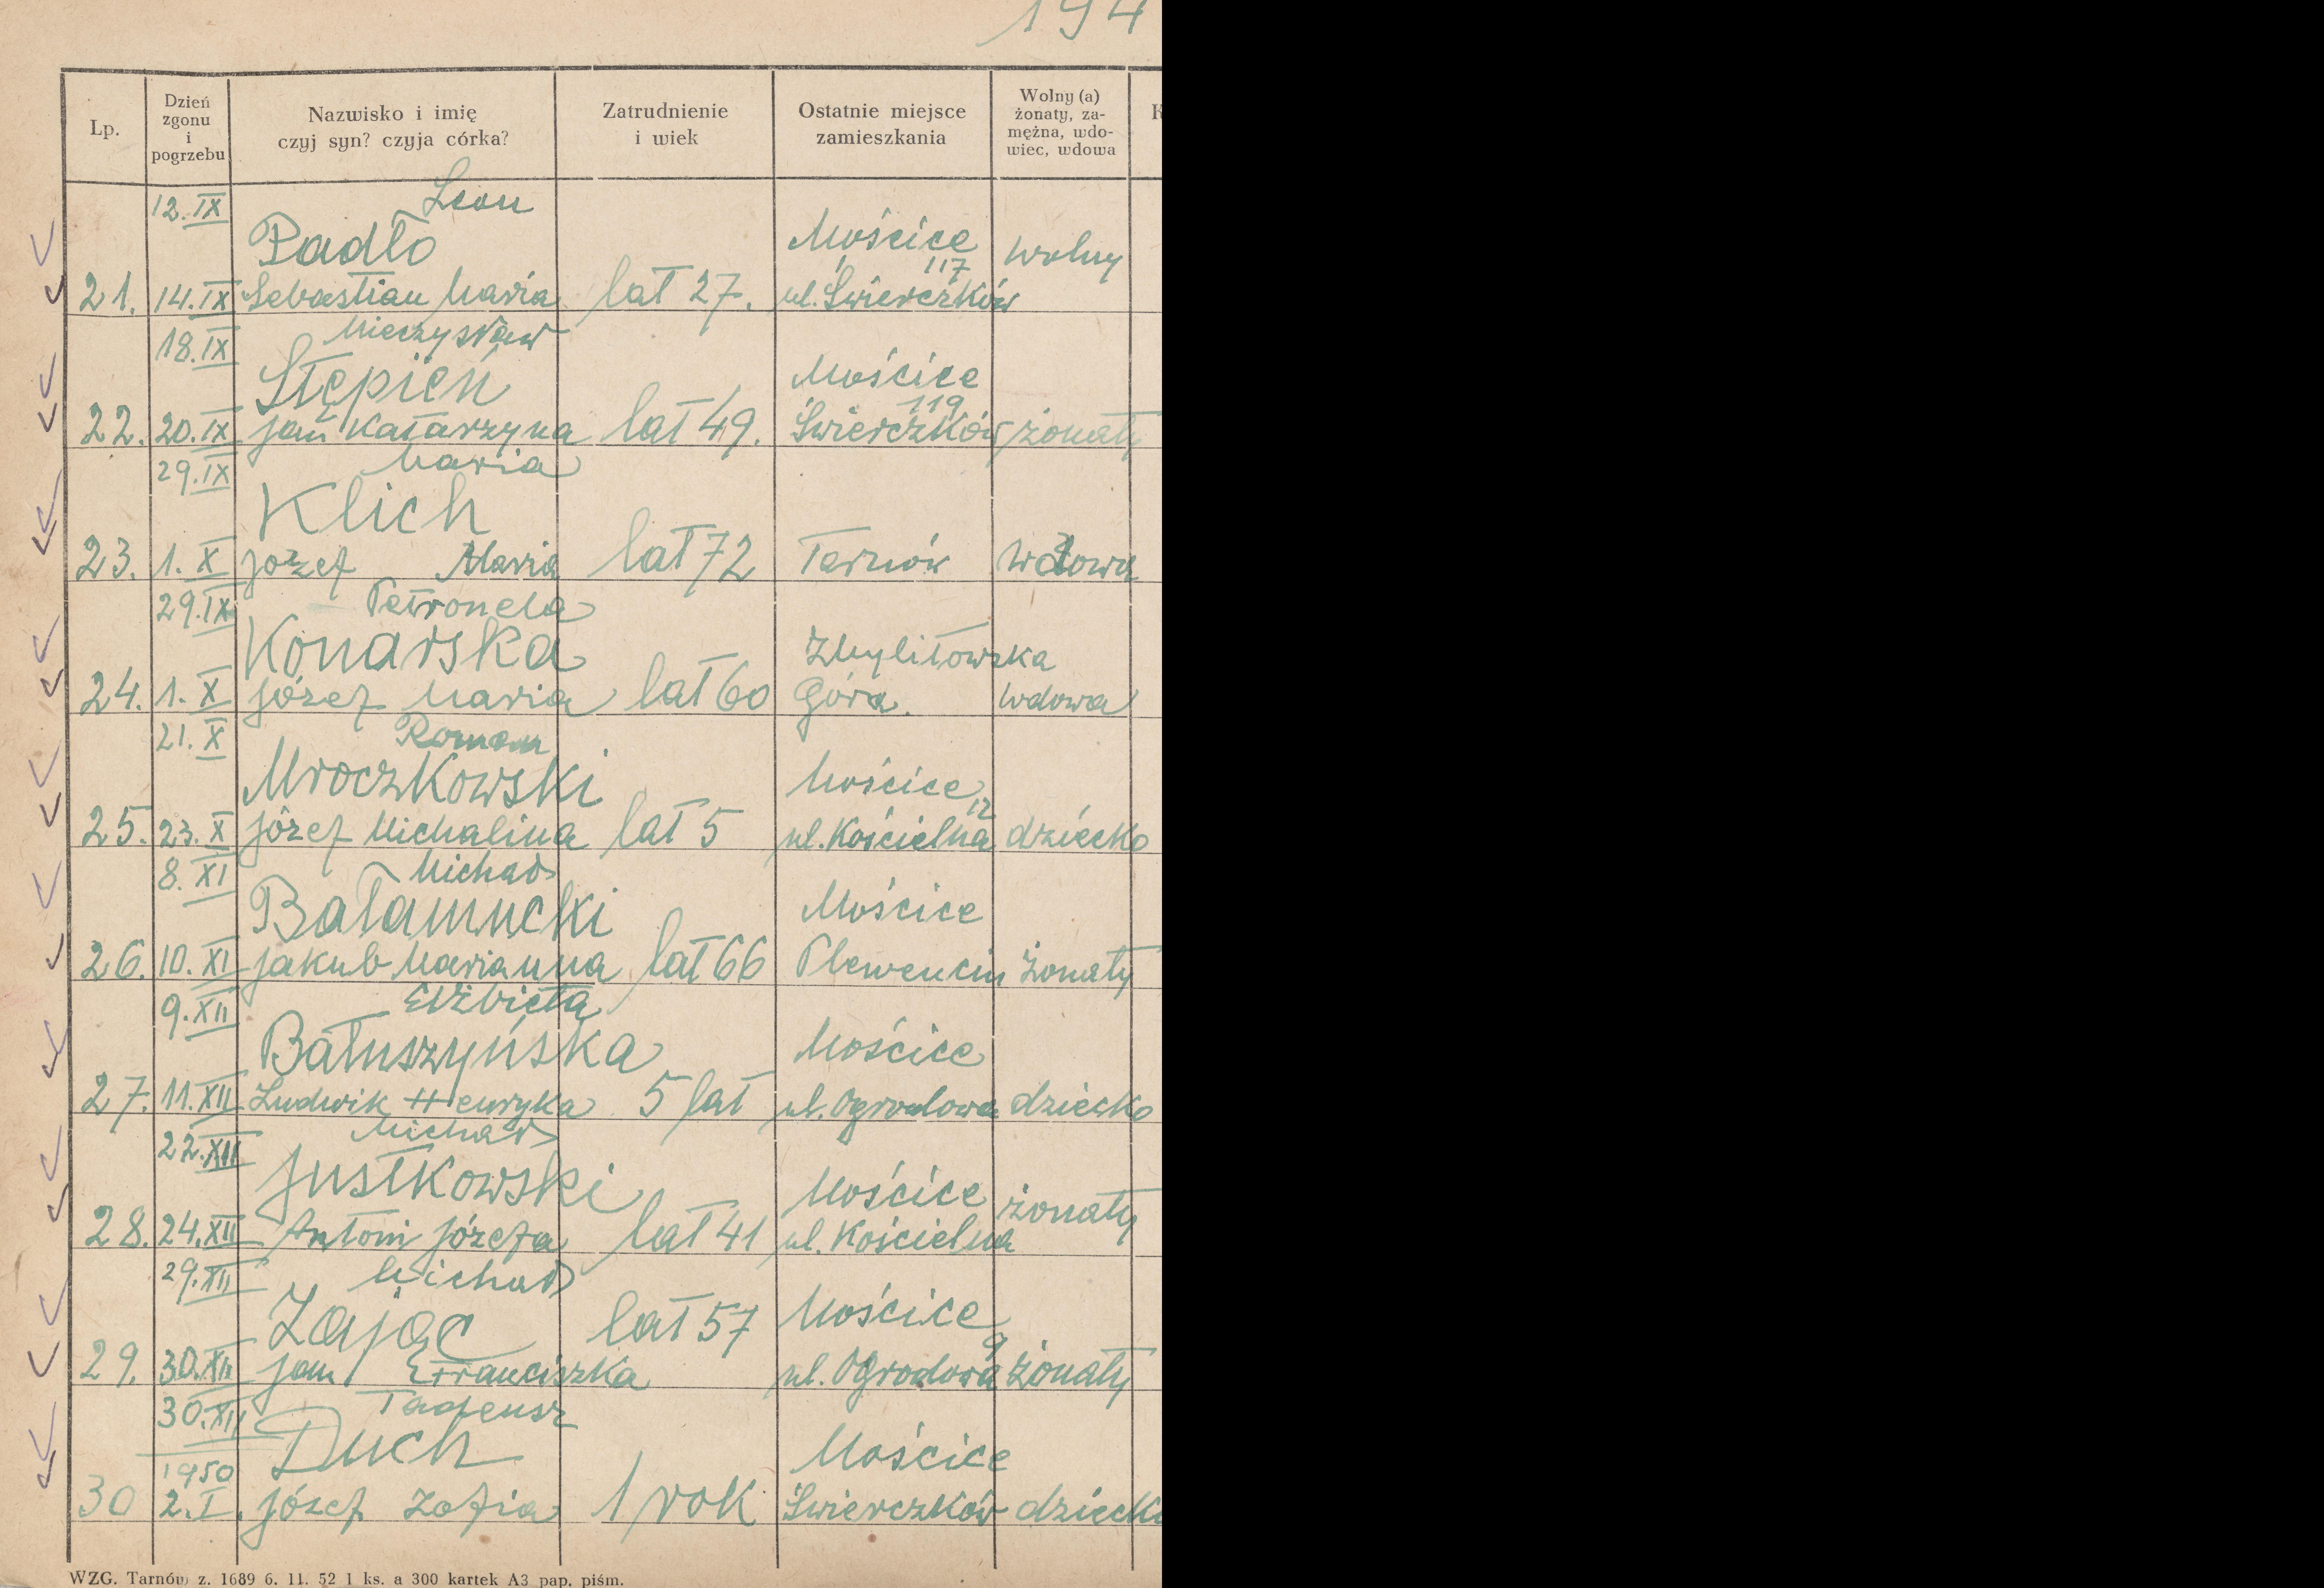 194
Lp.
Dzień
zgonu
i
pogrzebu
Nazwisko i imię
czyj syn? czyja córka?
Zatrudnienie
i wiek
Ostatnie miejsce
zamieszkania
Wolny (a)
żonaty, za-
mężna, wdo-
wiec, wdowa
12. IX Leon
Padło Mościce wolny
117
21. 14. IX Sebastian Maria lat 27. ul. Świerczków
18. IX Mieczysław
Stępień Mościce
119
22. 20. IX Jan Katarzyna lat 49. Świerczków żonaty
29. IX Maria
Klich
23. 1. X Jozef Maria lat 72 Tarnów wdowa
29. IX Petronela
Konarska Zbylitowska
24. 1. X Józef Maria lat 60 Góra. wdowa
21. X Roman
Mroczkowski Mościce
12
25. 23. X Józef Michalina lat 5 ul. Kościelna dziecko
8. XI Michał
Bałamucki Mościce
26. 10. XI Jakub Marianna lat 66 żonaty
9. XII Elżbieta
Bałuszyńska Mościce
27. 11. XII Ludwik Henryka 5 lat ul. Ogrodowa dziecko
22. XII Michał
Justkowski Mościce żonaty
28. 24. XII Antoni Józefa lat 41 ul. Kościelna
29. XII Michał
Zając lat 57 Mościce
9
29. 30. XII Jan Franciszka ul. Ogrodowa żonaty
30. XII Tadeusz
Duch Mościce
1950
30 2. I. Józef Zofia 1 rok Świerczków dziecko
WZG. Tarnów z. 1689 6. 11. 52 1 ks. a 300 kartek A3 pap. piśm.